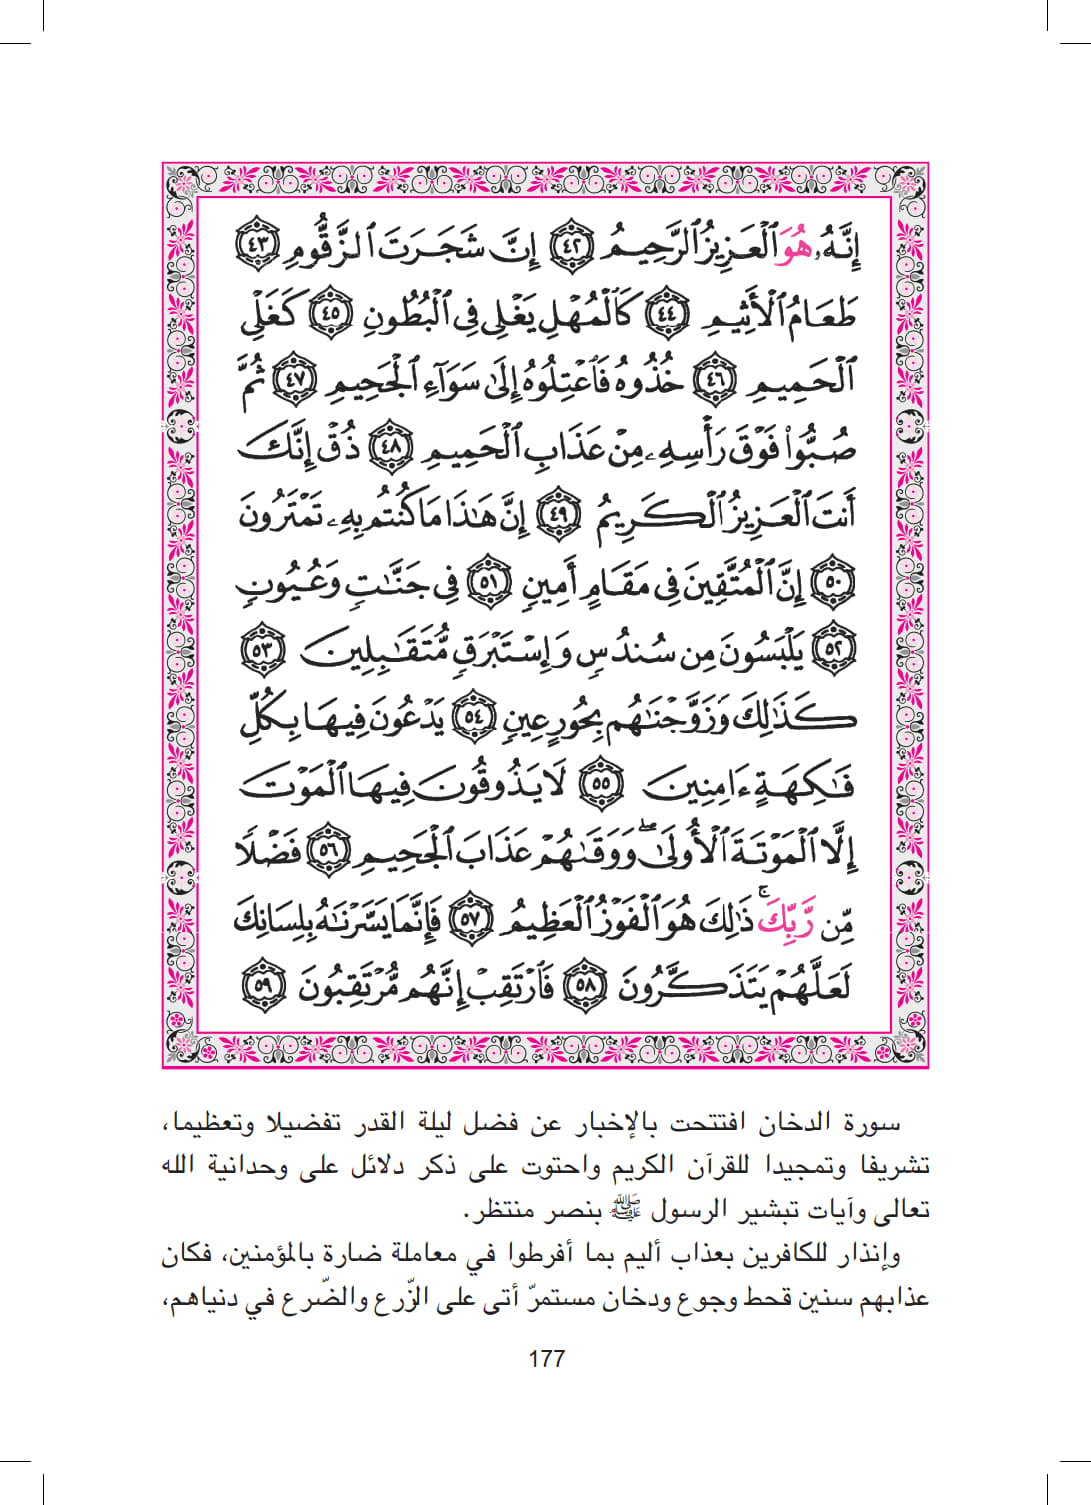 إِنَّهُۥ هُوَ ٱلْعَزِيزُ ٱلرَّحِيمُ ﴿٤٢﴾ إِنَّ شَجَرَتَ ٱلزَّقُّومِ ﴿٤٣﴾
طَعَامُ ٱلْأَثِيمِ ﴿٤٤﴾ كَٱلْمُهْلِ يَغْلِى فِى ٱلْبُطُونِ ﴿٤٥﴾ كَغَلْىِ
ٱلْحَمِيمِ ﴿٤٦﴾ خُذُوهُ فَٱعْتِلُوهُ إِلَىٰ سَوَآءِ ٱلْجَحِيمِ ﴿٤٧﴾ ثُمَّ
صُبُّوا۟ فَوْقَ رَأْسِهِۦ مِنْ عَذَابِ ٱلْحَمِيمِ ﴿٤٨﴾ ذُقْ إِنَّكَ
أَنتَ ٱلْعَزِيزُ ٱلْكَرِيمُ ﴿٤٩﴾ إِنَّ هَٰذَا مَا كُنتُم بِهِۦ تَمْتَرُونَ
﴿٥٠﴾ إِنَّ ٱلْمُتَّقِينَ فِى مَقَامٍ أَمِينٍ ﴿٥١﴾ فِى جَنَّٰتٍ وَعُيُونٍ
﴿٥٢﴾ يَلْبَسُونَ مِن سُندُسٍ وَإِسْتَبْرَقٍ مُّتَقَٰبِلِينَ ﴿٥٣﴾
كَذَٰلِكَ وَزَوَّجْنَٰهُم بِحُورٍ عِينٍ ﴿٥٤﴾ يَدْعُونَ فِيهَا بِكُلِّ
فَٰكِهَةٍ ءَامِنِينَ ﴿٥٥﴾ لَا يَذُوقُونَ فِيهَا ٱلْمَوْتَ
إِلَّا ٱلْمَوْتَةَ ٱلْأُولَىٰ ۖ وَوَقَىٰهُمْ عَذَابَ ٱلْجَحِيمِ ﴿٥٦﴾ فَضْلًا
مِّن رَّبِّكَ ۚ ذَٰلِكَ هُوَ ٱلْفَوْزُ ٱلْعَظِيمُ ﴿٥٧﴾ فَإِنَّمَا يَسَّرْنَٰهُ بِلِسَانِكَ
لَعَلَّهُمْ يَتَذَكَّرُونَ ﴿٥٨﴾ فَٱرْتَقِبْ إِنَّهُم مُّرْتَقِبُونَ ﴿٥٩﴾
سورة الدخان افتتحت بالإخبار عن فضل ليلة القدر تفضيلا وتعظيما،
تشريفا وتمجيدا للقرآن الكريم واحتوت على ذكر دلائل على وحدانية الله
تعالى وآيات تبشير الرسول ﷺ بنصر منتظر.
وإنذار للكافرين بعذاب أليم بما أفرطوا في معاملة ضارة بالمؤمنين، فكان
عذابهم سنين قحط وجوع ودخان مستمرّ أتى على الزّرع والضّرع في دنياهم،
177